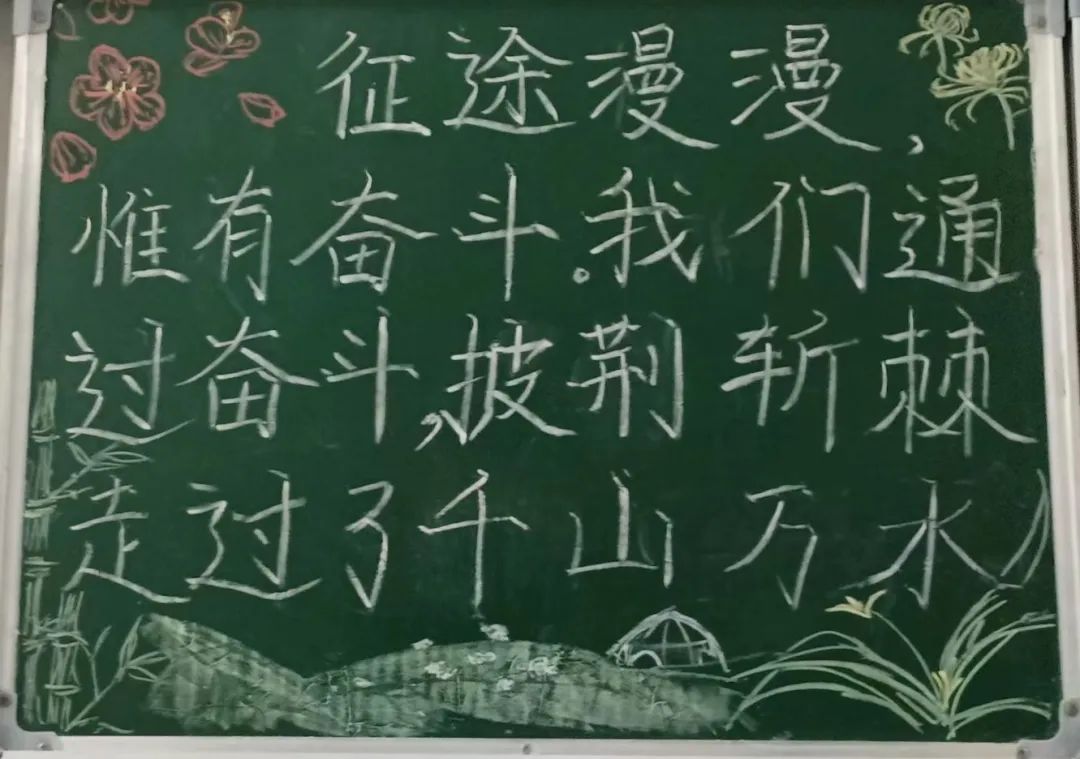 征途漫漫，
惟有奋斗。我们通
过奋斗，披荆斩棘
走过了千山万水